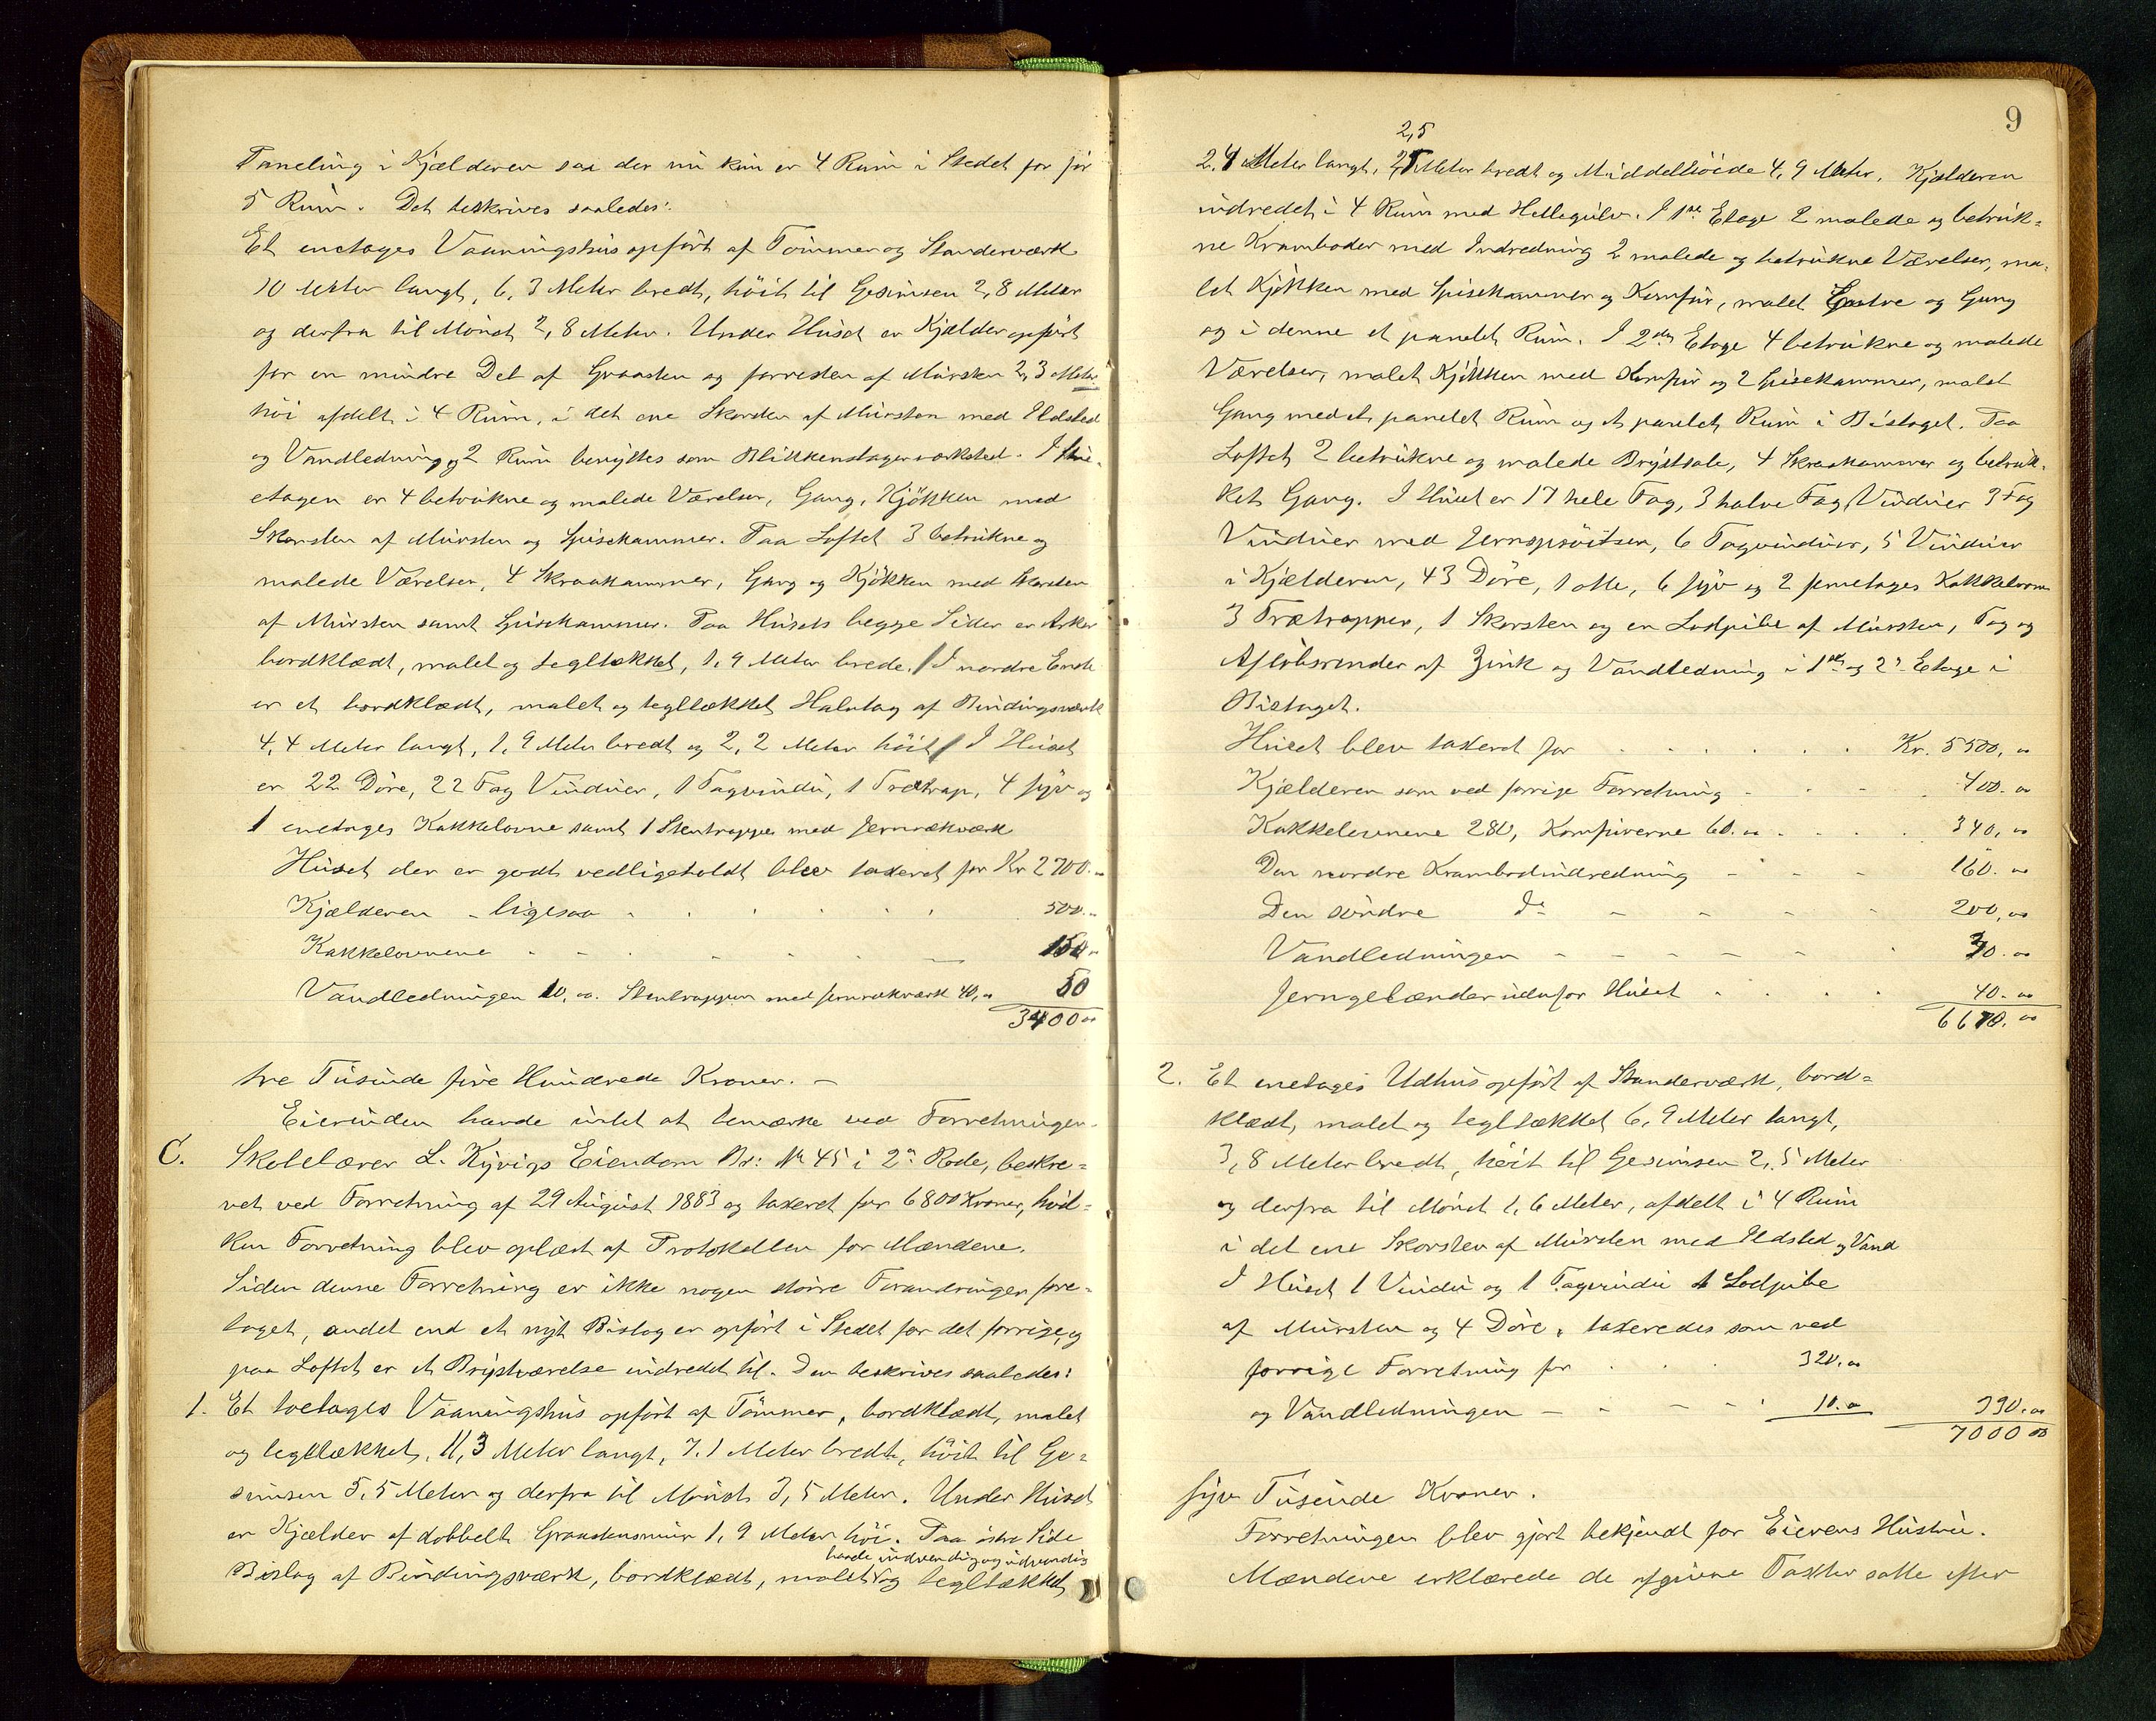 Paneling i Kjælderen saa der nu kun er 4 Rum i Stedet for før
5 Rum. Det beskrives saaledes:
Et enetages Vaaningshus opført af Tømmer og Standerværk
10 Meter langt, 6,3 Meter bredt, höit til Gesimsen 2,8 Meter
og derfra til Mönet 2,8 Meter. Under Huset er Kjælder opført
for en mindre Del af Graasten og forresten af Mursten 2,3 Meter
höi afdelt i 4 Rum, i det ene Skorsten af Mursten med Ildsted
og Vandledning og 2 Rum benyttes som Blikkenslagerværksted. I
etagen er 4 betrukne og malede Værelser, Gang, Kjökken med
Skorsten af Mursten og Spisekammer. Paa Loftet 3 betrukne og
malede Værelser, 4 Skraakammer, Gang og Kjökken med Skorsten
af Mursten samt Spisekammer. Paa Husets begge Sider er Arker
bordklædt, malet og tegltækket, 1,9 Meter brede. I nordre Ende
er et bordklædt, malet og tegltækket Halvtag af Bindingsværk
4,4 Meter langt, 1,9 Meter bredt og 2,2 Meter höit. I Huset
er 22 Döre, 22 Fag Vinduer, 1 Tagvindu, 1 Trætrap, 4 fyr og
1 enetages Kakkelovne samt 1 Stentrappe med Jernrækværk
Huset der er godt vedligeholdt blev taxeret for Kr 2700.00
Kjælderen - ligesaa . . . . . . 500.00
Kakkelovnene - - - - - - 150.00
Vandledningen 10,00. Stentrappen med Jernrækværk 40,00 50
3400.00
tre Tusinde fire Hundrede Kroner. -
Eierinden havde intet at bemærke ved Forretningen.
C. Skolelærer L. Kyvigs Eiendom Br: No 45 i 2n Rode, beskre-
vet ved Forretning af 29 August 1883 og taxeret for 6800 Kroner, hvil-
ken Forretning blev oplæst af Protokollen for Mændene.
Siden denne Forretning er ikke nogen större Forandringer fore-
taget, andet end et nyt Bislag er opført i Stedet for det forrige, og
paa Loftet er et Brystværelse indredet til. Den beskrives saaledes:
1. Et toetages Vaaningshus opført af Tömmer, bordklædt, malet
og tegltækket, 11,3 Meter langt, 7,1 Meter bredt, höit til Ge-
simsen 5,5 Meter og derfra til Mönet 3,5 Meter. Under Huset
er Kjælder af dobbelt Graastensmur 1,9 Meter höi. Paa östre Side
baade indvendig og udvendig
Bislag af Bindingsværk, bordklædt, malet og tegltækket,
9
2,5
2,4 Meter langt, 2,5 Meter bredt og Middelhöide 4,9 Meter. Kjælderen
indredet i 4 Rum med Hellegulv. I 1ste Etage 2 malede og betruk-
ne Kramboder med Indredning 2 malede og betrukne Værelser, ma-
let Kjökken med Spisekammer og Komfur, malet Entre og Gang
og i denne et panelet Rum. I 2den Etage 4 betrukne og malede
Værelser, malet Kjökken med Komfur og 2 Spisekammer, malet
Gang med et panelet Rum og et panelet Rum i Bislaget. Paa
Loftet 2 betrukne og malede Brystsale, 4 Skraakammer og betruk-
ket Gang. I Huset er 17 hele Fag, 3 halve Fag Vinduer 3 Fag
Vinduer med Jernspröitser, 6 Tagvinduer, 5 Vinduer
i Kjælderen, 43 Döre, 1 otte, 6 fyr og 2 femetages Kakkelovne
3 Trætrapper, 1 Skorsten og en Lodpibe af Mursten, Tag og
Aflöbsrender af Zink og Vandledning i 1ste og 2n Etage i
Bislaget.
Huset blev taxeret for . . . . . . Kr. 5500,00
Kjælderen som ved forrige Forretning - - - 400.00
Kakkelovnene 280, Komfurerne 60.00 . . . . 340,00
Den nordre Krambodindredning - - - 160.00
Den söndre do - - - - 200,00
Vandledningen - - - - - 30.00
Jerngelænder udenfor Huset . . . . 40.00
6670.00
2. Et enetages Udhus opført af Standerværk, bord-
klædt, malet og tegltækket 6,9 Meter langt,
3,8 Meter bredt, höit til Gesimsen 2,5 Meter
og derfra til Mönet 1,6 Meter, afdelt i 4 Rum
i det ene Skorsten af Mursten med Ildsted og Vand
I Huset 1 Vindu og 1 Tagvindu 1 Lodpibe
af Mursten og 4 Döre, taxeredes som ved
forrige Forretning for . . . 320.00
og Vandledningen - - - - 10.00 330.00
7000 00
syv Tusinde Kroner.
Forretningen blev gjort bekjendt for Eierens Hustru.
Mændene erklærede de afgivne Taxter satte efter